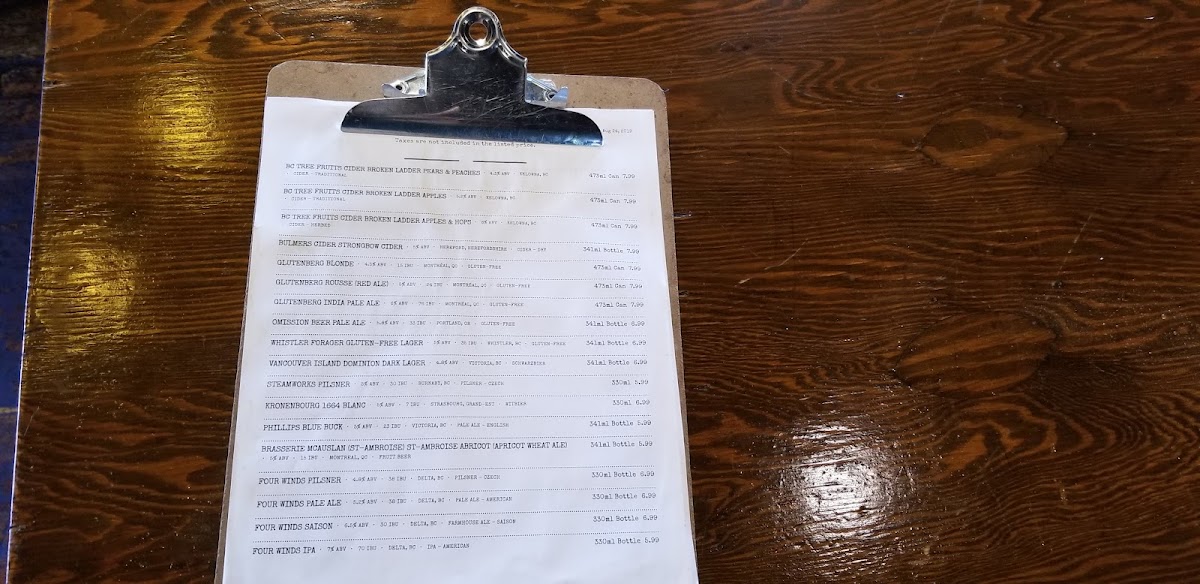 Taxes are not included in the listed price.
BC TREE FRUITS CIDER BROKEN LADDER PEARS & PEACHES · ABV · KELOWNA, BC 473ml Can 7.99
· CIDER - TRADITIONAL
BC TREE FRUITS CIDER BROKEN LADDER APPLES · ABV · KELOWNA, BC 473ml Can 7.99
· CIDER - TRADITIONAL
BC TREE FRUITS CIDER BROKEN LADDER APPLES & HOPS · ABV · KELOWNA, BC 473ml Can 7.99
CIDER - HERBED
BULMERS CIDER STRONGBOW CIDER · 5% ABV · HEREFORD, HEREFORDSHIRE · CIDER - DRY 341ml Bottle 7.99
GLUTENBERG BLONDE · 4.5% ABV · 15 IBU · MONTRÉAL, QC · GLUTEN-FREE 473ml Can 7.99
GLUTENBERG ROUSSE (RED ALE) · 5% ABV · IBU · MONTRÉAL, QC · GLUTEN-FREE 473ml Can 7.99
GLUTENBERG INDIA PALE ALE · 6% ABV · IBU · MONTRÉAL, QC · GLUTEN-FREE 473ml Can 7.99
OMISSION BEER PALE ALE · 5.8% ABV · 33 IBU · PORTLAND, OR · GLUTEN-FREE 341ml Bottle 6.99
WHISTLER FORAGER GLUTEN-FREE LAGER · 5% ABV · IBU · WHISTLER, BC · GLUTEN-FREE 341ml Bottle 6.99
VANCOUVER ISLAND DOMINION DARK LAGER · ABV · VICTORIA, BC · SCHWARZBIER 341ml Bottle 6.99
STEAMWORKS PILSNER · 5% ABV · 30 IBU · BURNABY, BC · PILSNER - CZECH 330ml 5.99
KRONENBOURG 1664 BLANC · 5% ABV · 7 IBU · STRASBOURG, GRAND-EST · WITBIER 330ml 6.99
PHILLIPS BLUE BUCK · 5% ABV · 22 IBU · VICTORIA, BC · PALE ALE - ENGLISH 341ml Bottle 5.99
BRASSERIE MCAUSLAN (ST-AMBROISE) ST-AMBROISE ABRICOT (APRICOT WHEAT ALE) 341ml Bottle 5.99
· 5% ABV · IBU · MONTREAL, QC · FRUIT BEER
FOUR WINDS PILSNER · 4.8% ABV · 38 IBU · DELTA, BC · PILSNER - CZECH 330ml Bottle 6.99
FOUR WINDS PALE ALE · ABV · 38 IBU · DELTA, BC · PALE ALE - AMERICAN 330ml Bottle 6.99
FOUR WINDS SAISON · 6.5% ABV · 30 IBU · DELTA, BC · FARMHOUSE ALE - SAISON 330ml Bottle 6.99
FOUR WINDS IPA · 7% ABV · 70 IBU · DELTA, BC · IPA - AMERICAN 330ml Bottle 5.99